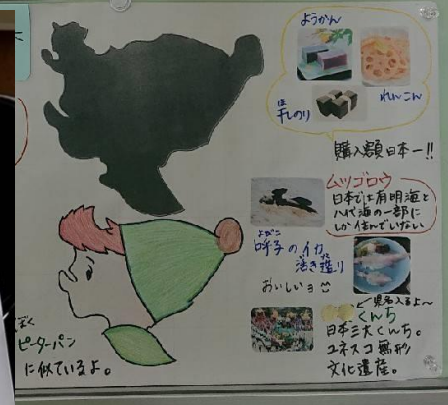 ようかん
れんこん
ほ
干しのり
購入額日本一!!
ムツゴロウ
日本では有明海と
八代海の一部に
しか住んでいない
よぶこ
呼子のイカ
活き造り
おいしいヨ
←県名入るよ~
くんち
日本三大くんち。
ユネスコ無形
文化遺産。
ぼく
ピーターパン
に似ているよ。